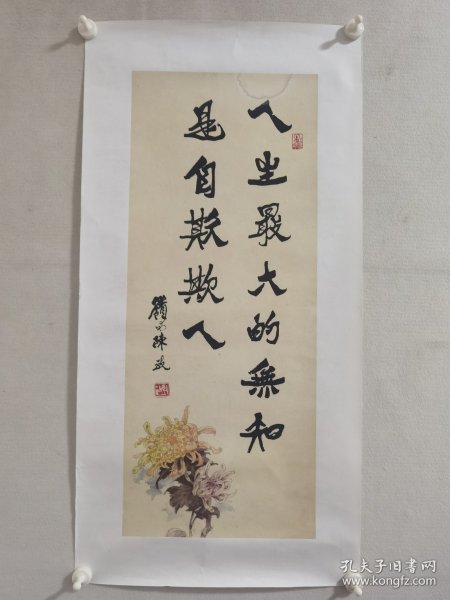 人生最大的無知
是自欺欺人
嶺南陳政
孔夫子旧书网
www.kongfz.com